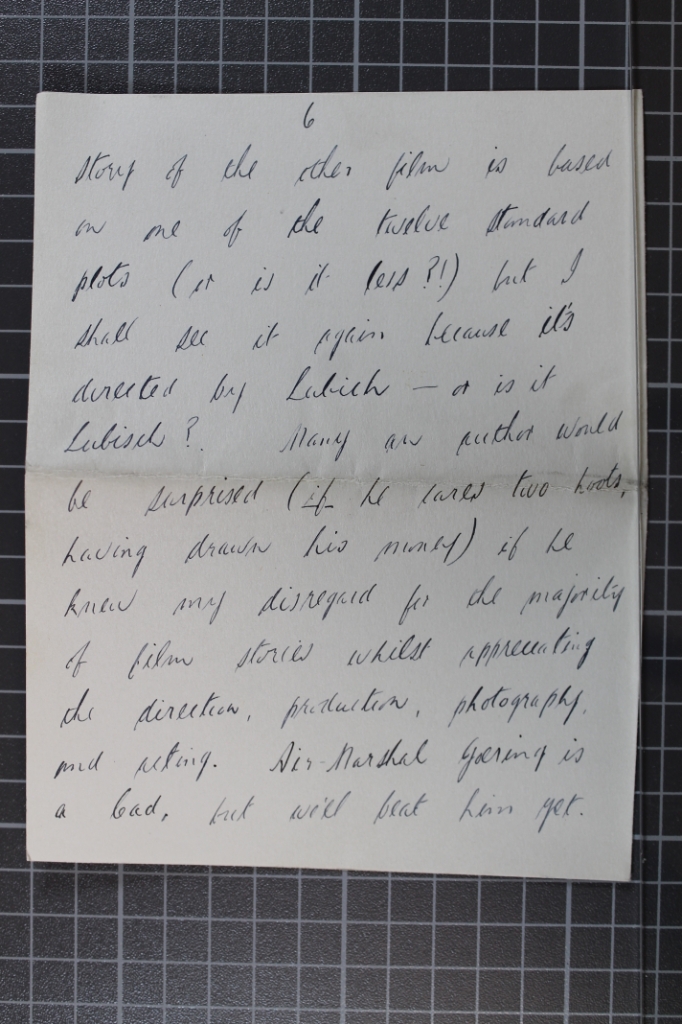 6
story of the other film is based
on one of the twelve standard
plots (or is it less?!) but I
shall see it again because it's
directed by Lubich — or is it
Lubisch? Many an author would
be surprised (if he cares two hoots,
having drawn his money) if he
knew my disregard for the majority
of film stories whilst appreciating
the direction, production, photography,
and acting. Air-Marshal Goering is
a cad, but we'll beat him yet.